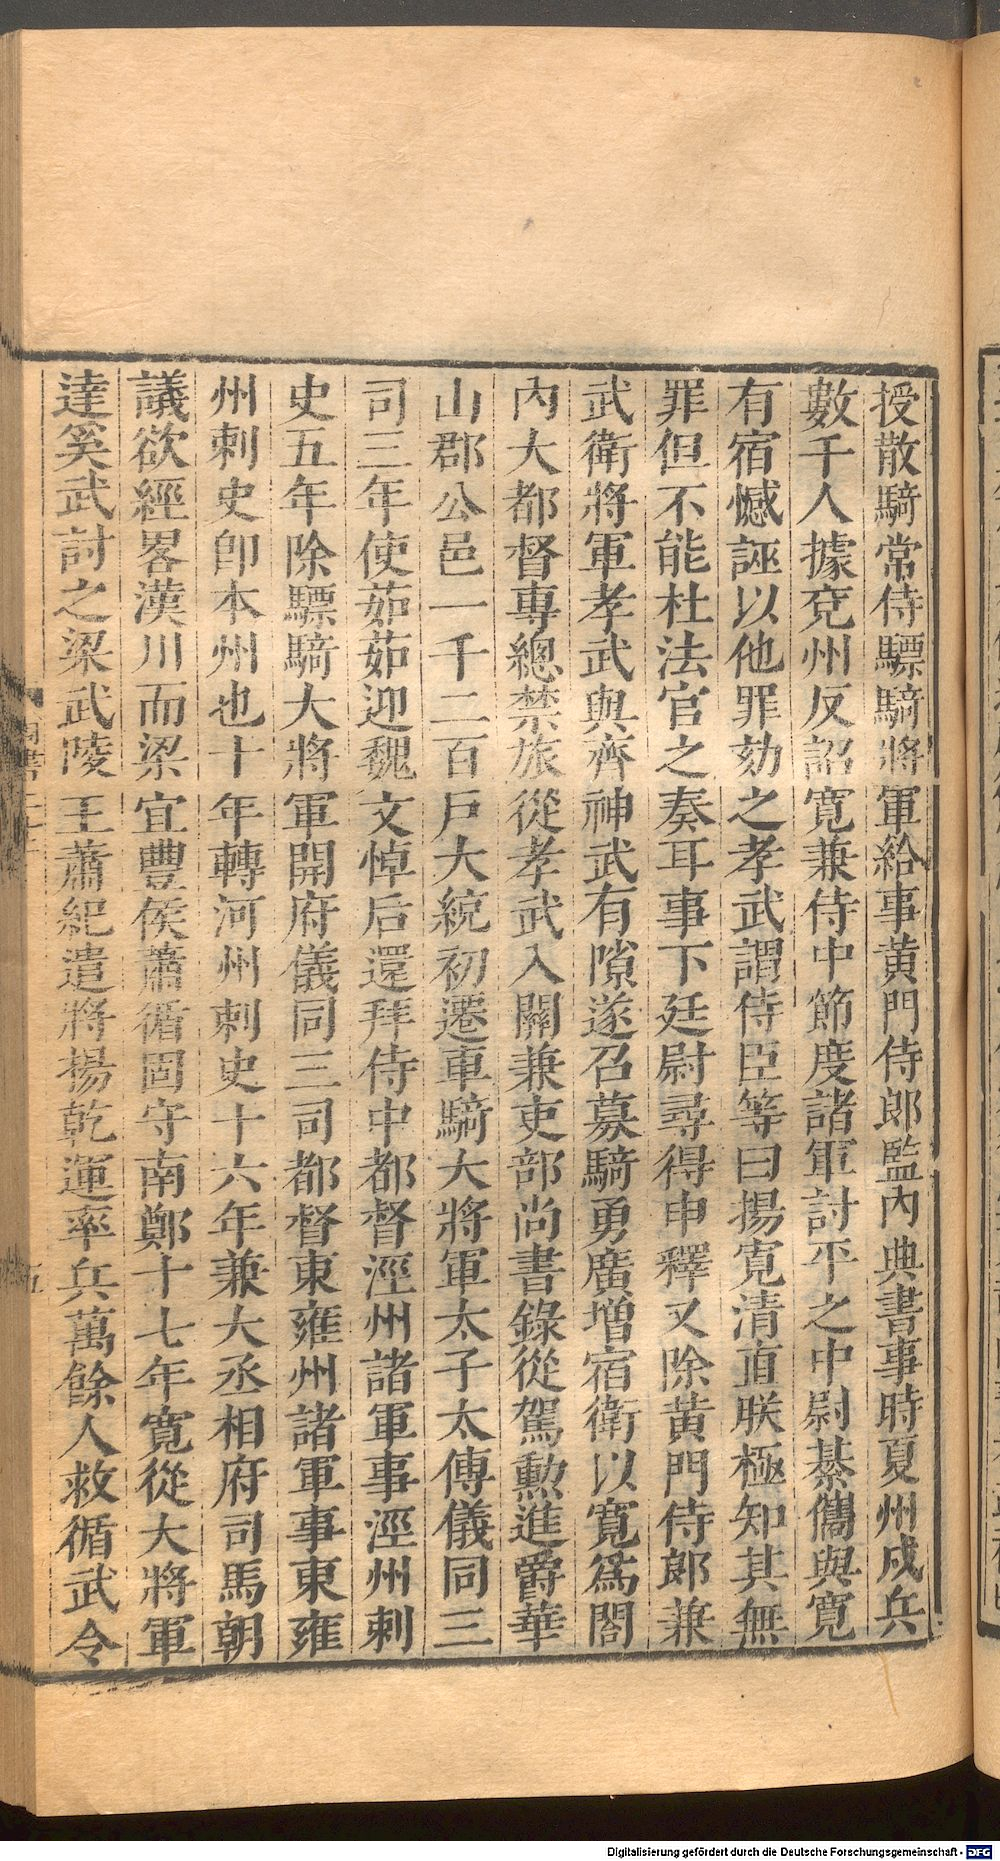 授散騎常侍驃騎將軍給事黄門侍郎監內典書事時夏州戍兵
數千人據兗州反詔寛兼侍中節度諸軍討平之中尉綦儁與寛
有宿憾誣以他罪劾之孝武謂侍臣等曰揚寛清直朕極知其無
罪但不能杜法官之奏耳事下廷尉尋得申釋又除黄門侍郎兼
武衛將軍孝武與齊神武有隙遂召募騎勇廣增宿衛以寛爲閤
內大都督專總禁旅從孝武入關兼吏部尚書錄從駕勲進爵華
山郡公邑一千二百戸大統初遷車騎大將軍太子太傅儀同三
司三年使茹茹迎魏文悼后還拜侍中都督涇州諸軍事涇州刺
史五年除驃騎大將軍開府儀同三司都督東雍州諸軍事東雍
州刺史卽本州也十年轉河州刺史十六年兼大丞相府司馬朝
議欲經畧漢川而梁宜豐侯蕭循固守南鄭十七年寛從大將軍
達奚武討之梁武陵王蕭紀遣將揚乾運率兵萬餘人救循武令
五
Digitalisierung gefördert durch die Deutsche Forschungsgemeinschaft - DFG